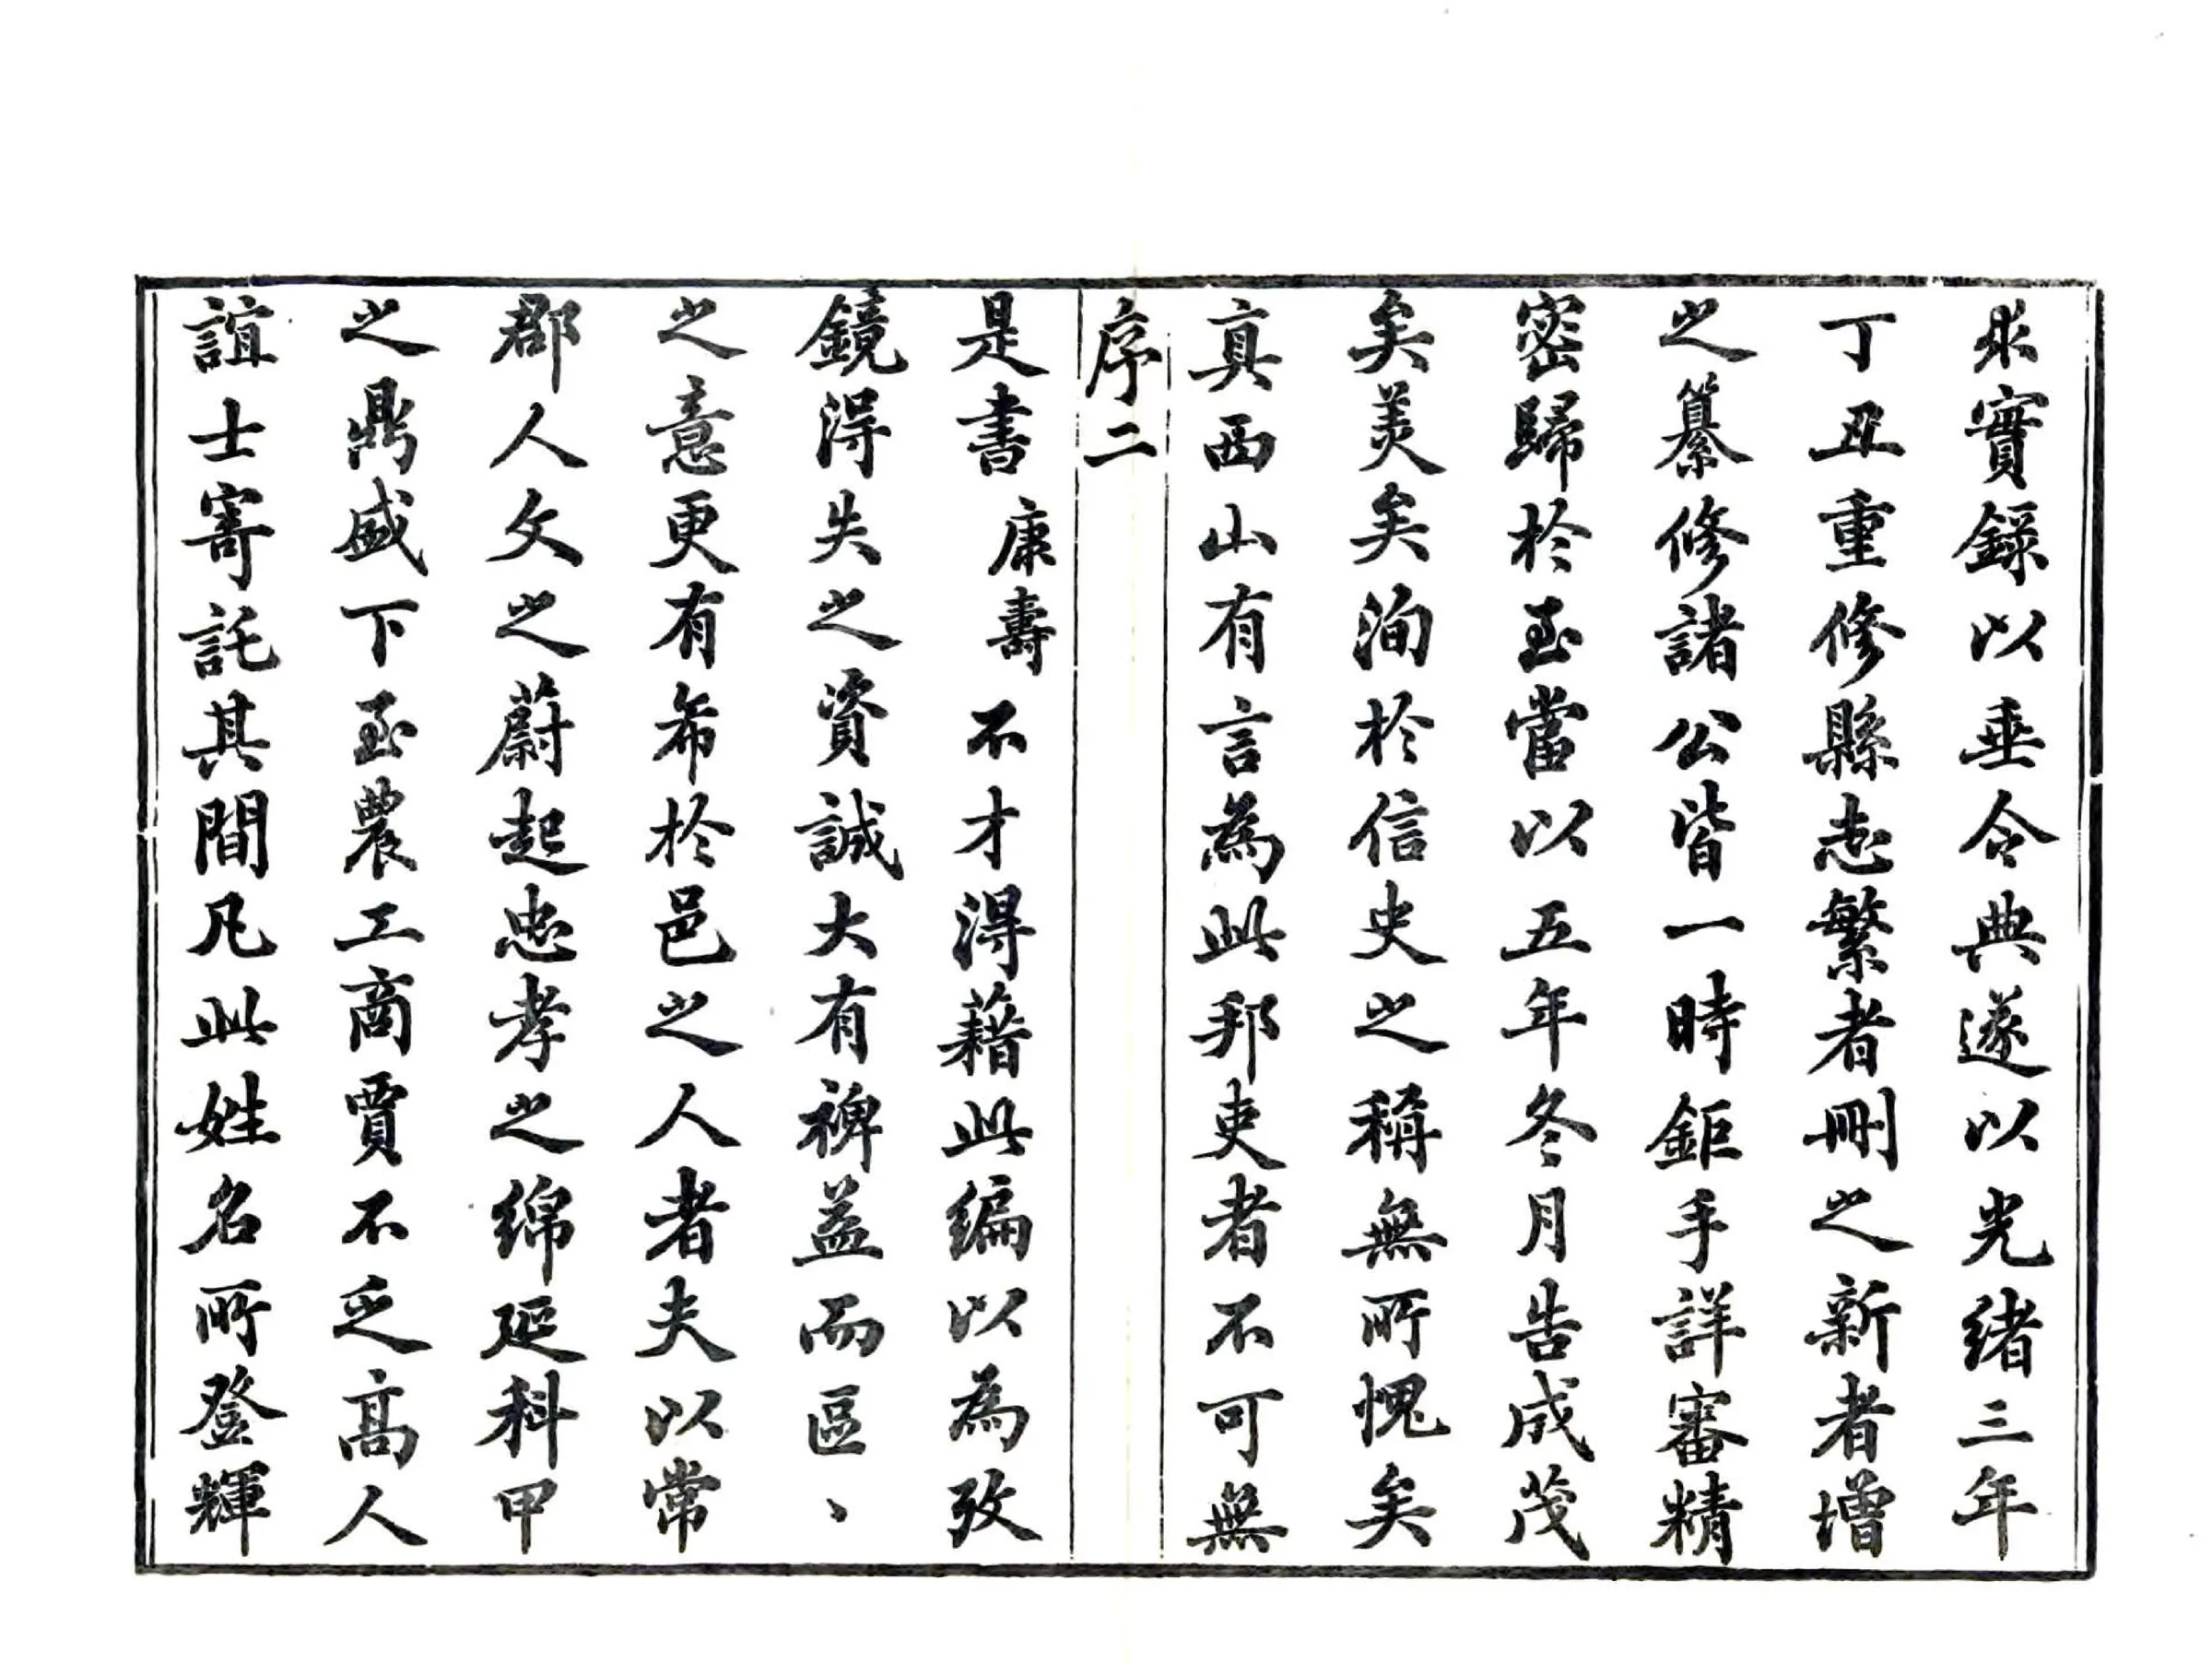 求實録以垂令典遂以光緒三年
丁丑重修縣志繁者刪之新者增
之纂修諸公皆一時鉅手詳審精
密歸於至當以五年冬月告成茂
矣美矣洵於信史之稱無所愧矣
真西山有言為此邦吏者不可無
序二
是書康壽不才得藉此編以為攷
鏡得失之資誠大有裨益而區、
之意更有希於邑之人者夫以常
郡人文之蔚起忠孝之綿延科甲
之鼎盛下至農工商賈不乏高人
誼士寄託其間凡此姓名所登輝